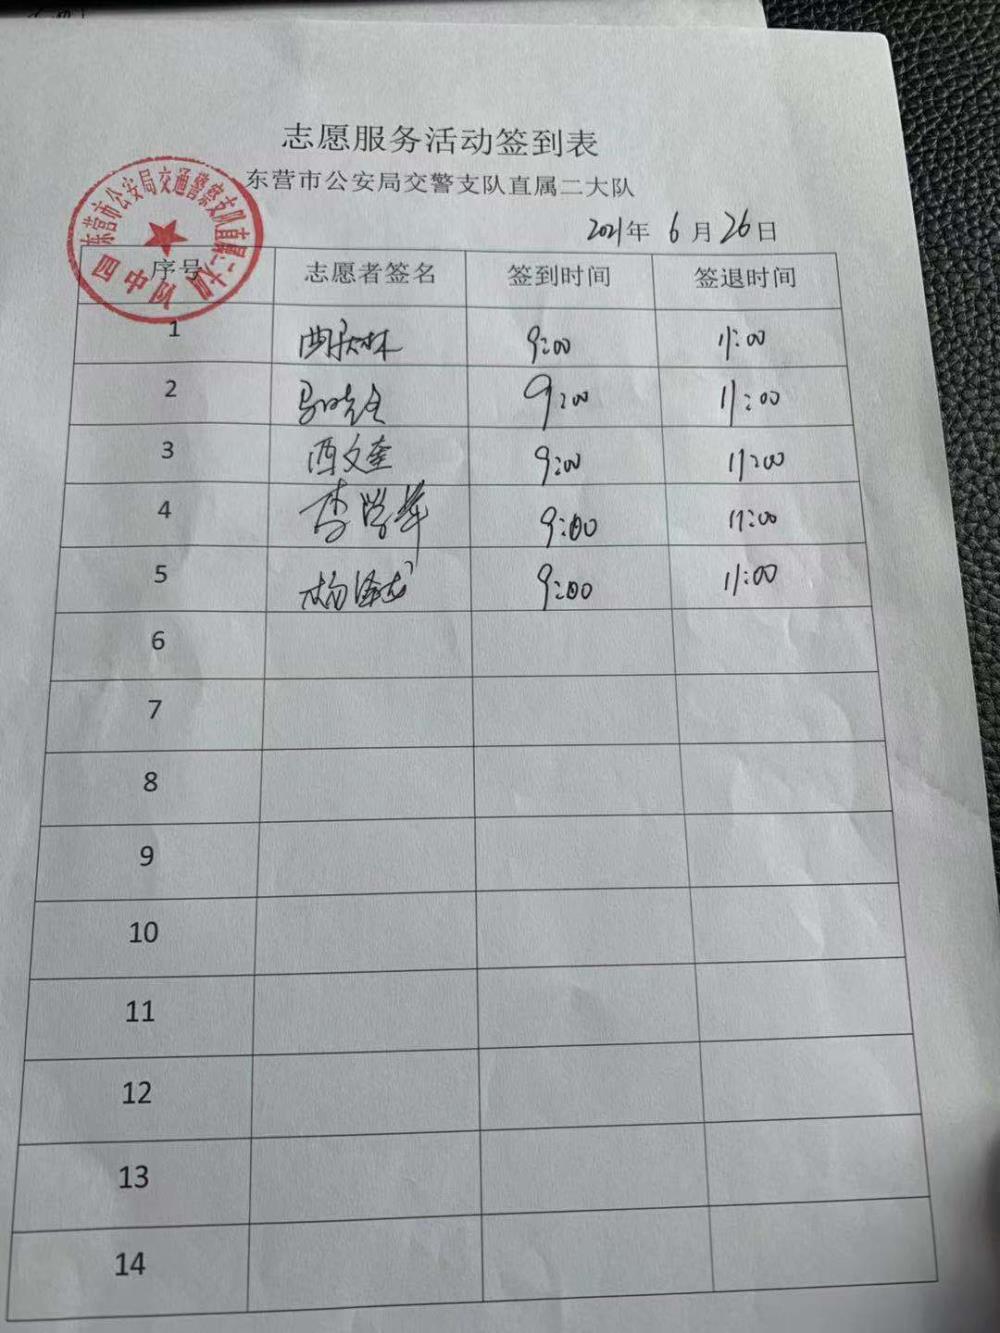 志愿服务活动签到表
东营市公安局交警支队直属二大队
2021年 6月26日
东营市公安局交通警察支队直属二大队
四中队
序号 志愿者签名 签到时间 签退时间
1 9:00 11:00
2 9:00 11:00
3 西文奎 9:00 11:00
4 李学华 9:00 11:00
5 杨泽龙 9:00 11:00
6
7
8
9
10
11
12
13
14